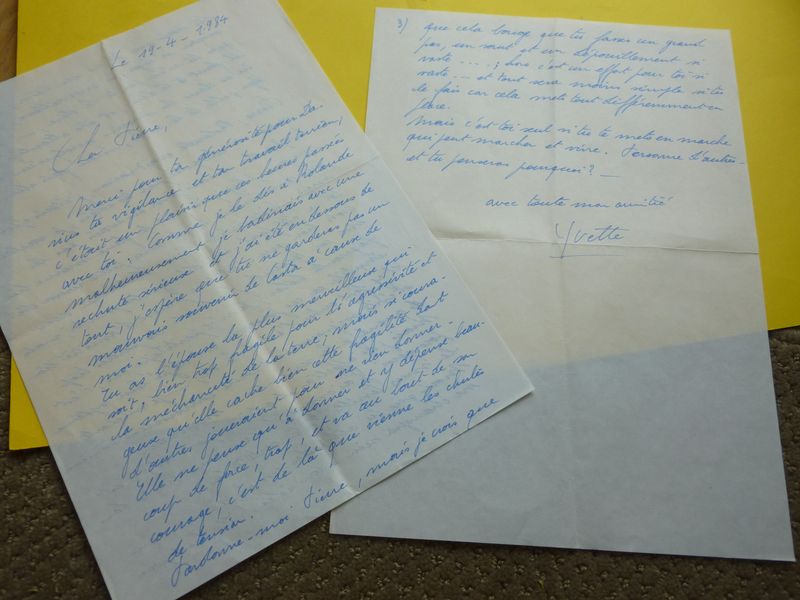 Le 19-4-1984
Cher Pierre,
Merci pour ta générosité pour
ta vigilance et ton travail terrien,
c'était un plaisir que ces heures passées
avec toi. Comme je le dis à Rolande
malheureusement je battinais avec une
rechute sérieuse et j'ai été en dessous de
tout, j'espère que tu ne garderas pas un
mauvais souvenir de Costa à cause de
moi.
Tu as l'épouse la plus merveilleuse qui
soit, bien trop fragile pour l'agressivité et
la méchanceté de la terre, mais si coura-
geuse qu'elle cache bien cette fragilité dont
d'autres joueraient pour ne rien donner-
Elle ne pense qu'à donner et y dépense beau-
coup de force, trop, et va au bout de son
courage, c'est de là que vienne les chutes
de tension.
Pardonne-moi Pierre, mais je crois que
3) que cela bouge que tu fasses un grand
pas, un saut et un dépouillement si
vaste ....; Lors c'est un effort pour toi si
vaste - et tout sera moins simple si tu
le fais car cela mets tout différemment en
place.
Mais c'est toi seul si tu te mets en marche
qui peut marcher et vivre. Personne d'autres-
et tu penseras pourquoi? -
avec toute mon amitié
Yvette